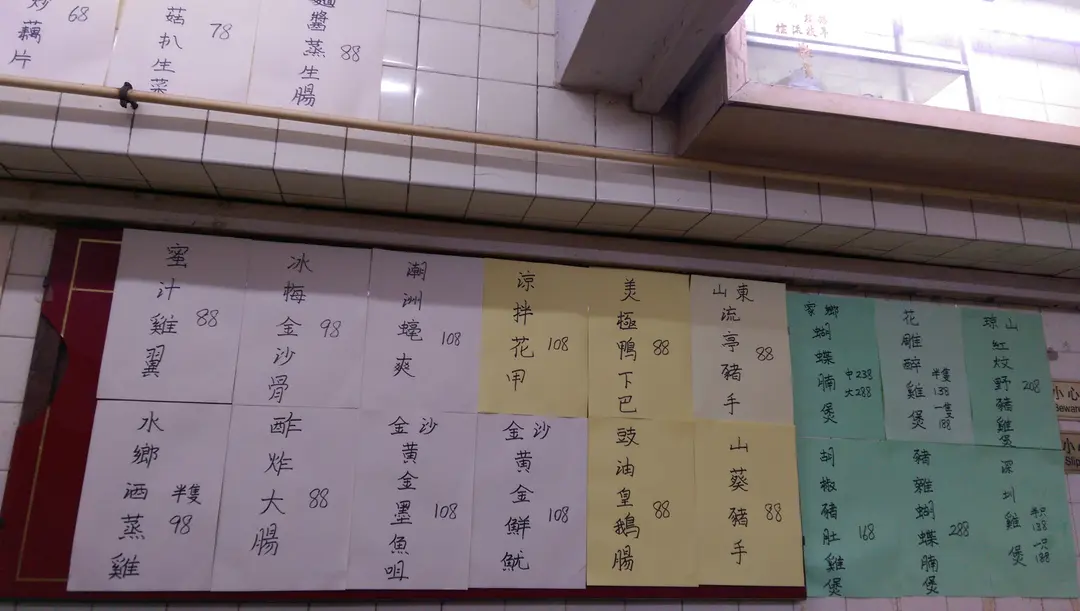 炒藕片 68
菇扒生菜 78
醬蒸生腸 88
蜜汁雞翼 88
冰梅金沙骨 98
潮洲蠔爽 108
涼拌花甲 108
美極鴨下巴 88
山東流亭豬手 88
家鄉蝴蝶腩煲 中238 大288
花雕醉雞煲 半隻138 一隻188
瓊山紅炆野豬雞煲 208
水鄉洒蒸雞 半隻98
酢炸大腸 88
金沙黃金墨魚咀 108
金沙黃金鮮魷 108
豉油皇鵝腸 88
山葵豬手 88
胡椒豬肚雞煲 168
豬雜蝴蝶腩煲 288
深圳雞煲 半只138 一只188
小心
Beware
小心
Slip